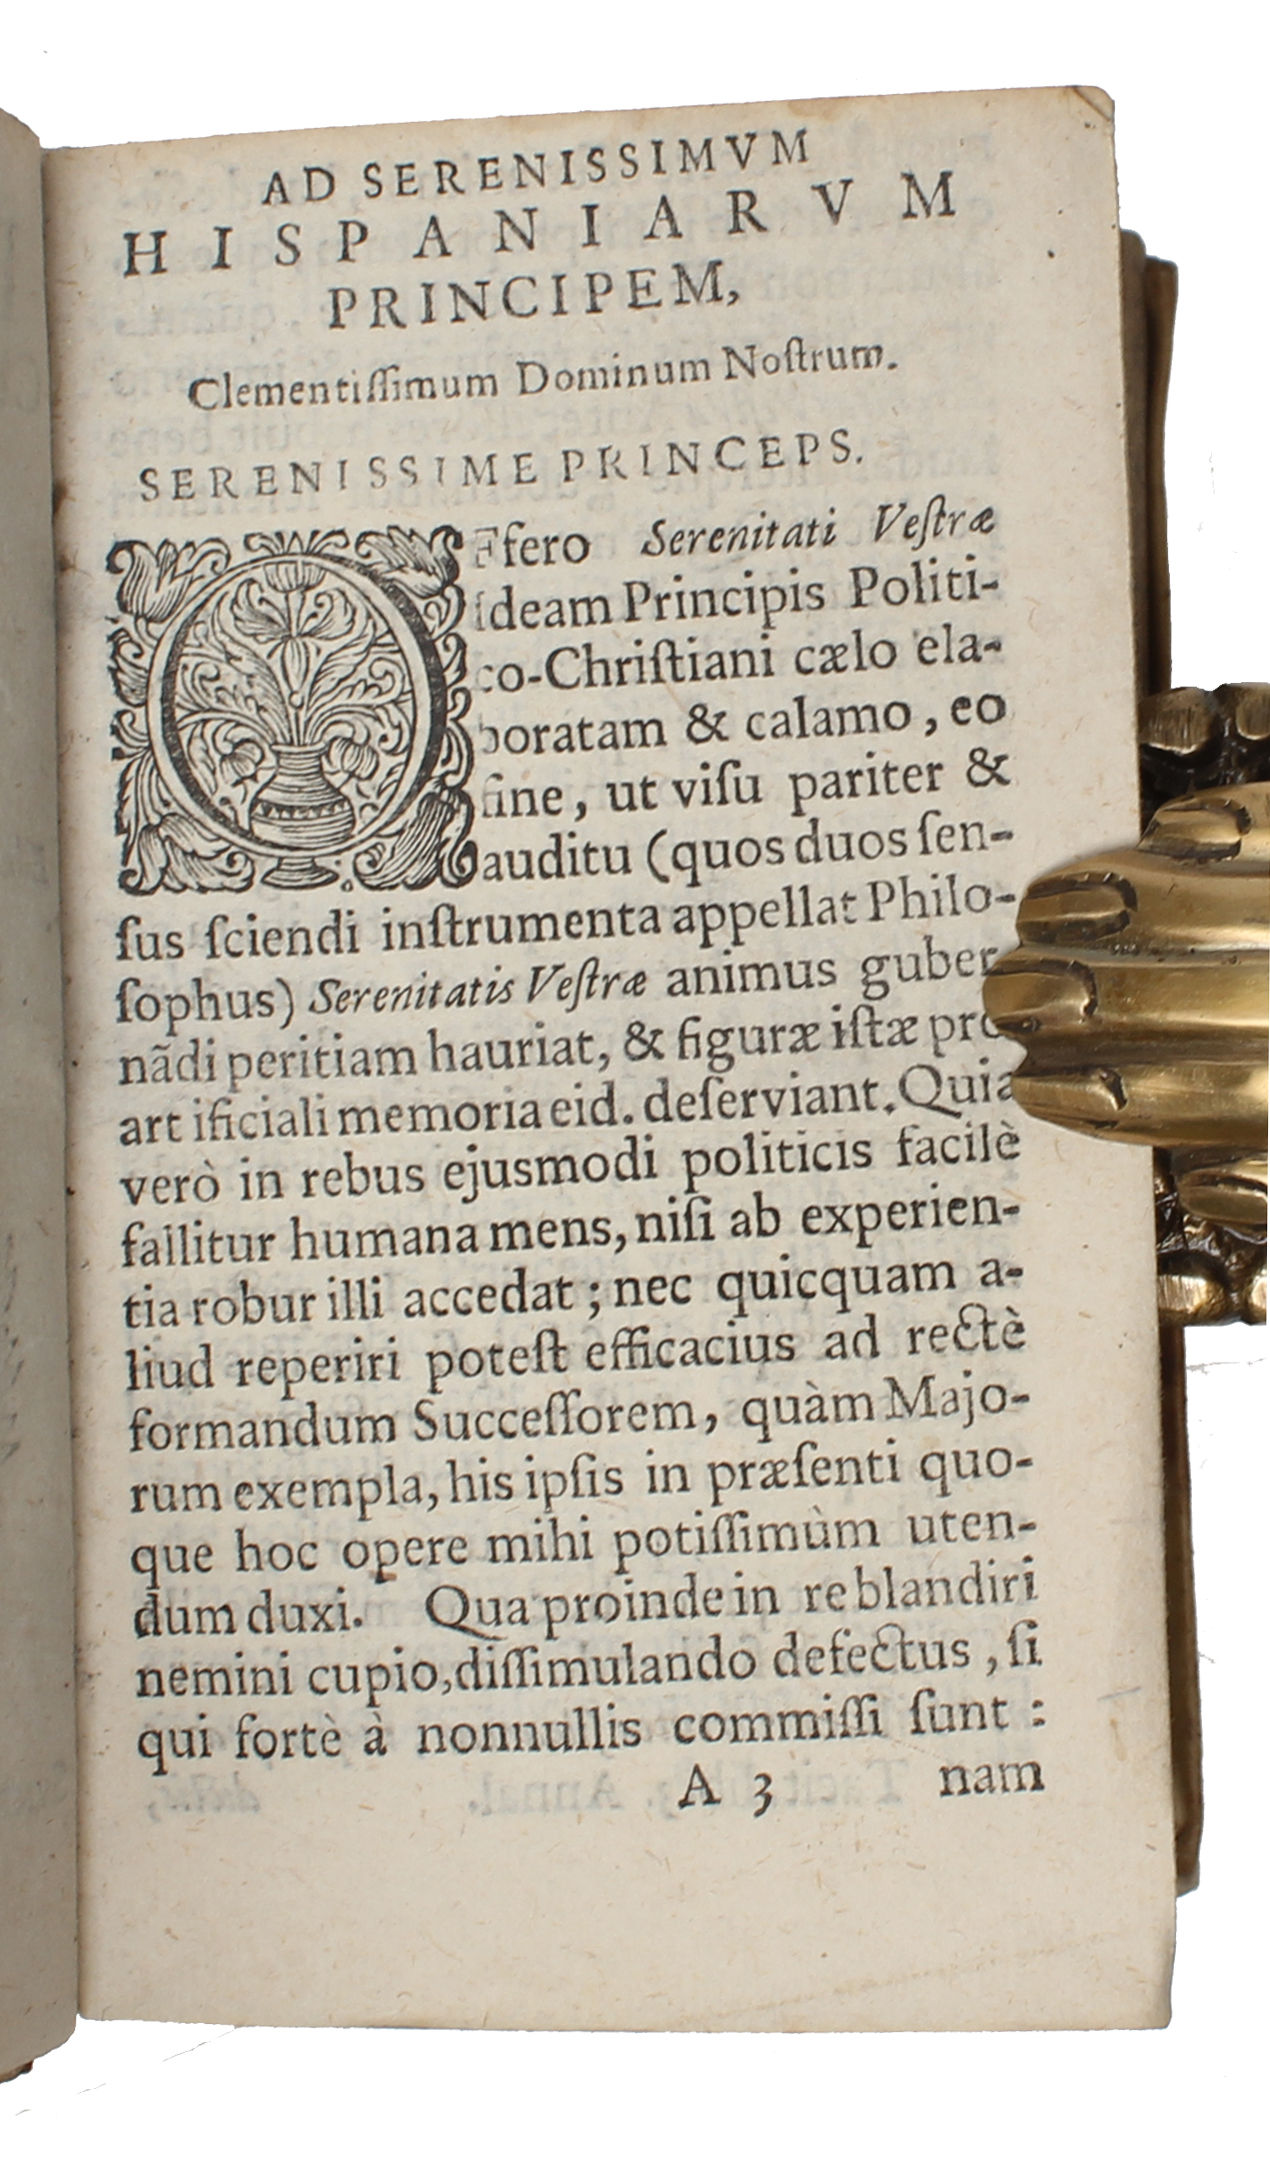 AD SERENISSIMVM
HISPANIARVM
PRINCIPEM,
Clementiſſimum Dominum Noſtrum.
SERENISSIME PRINCEPS.
OFfero Serenitati Veſtræ
ideam Principis Politi-
co-Chriſtiani cælo ela-
boratam & calamo, eo
fine, ut viſu pariter &
auditu (quos duos ſen-
ſus ſciendi inſtrumenta appellat Philo-
ſophus) Serenitatis Veſtræ animus guber
nãdi peritiam hauriat, & figuræ iſtæ pro
art ificiali memoria eid. deſerviant. Quia
verò in rebus ejusmodi politicis facilè
fallitur humana mens, niſi ab experien-
tia robur illi accedat; nec quicquam a-
liud reperiri poteſt efficacius ad rectè
formandum Succeſſorem, quàm Majo-
rum exempla, his ipſis in præſenti quo-
que hoc opere mihi potiſſimùm uten-
dum duxi. Qua proinde in re blandiri
nemini cupio, diſſimulando defectus, ſi
qui fortè à nonnullis commiſſi ſunt:
A 3 nam